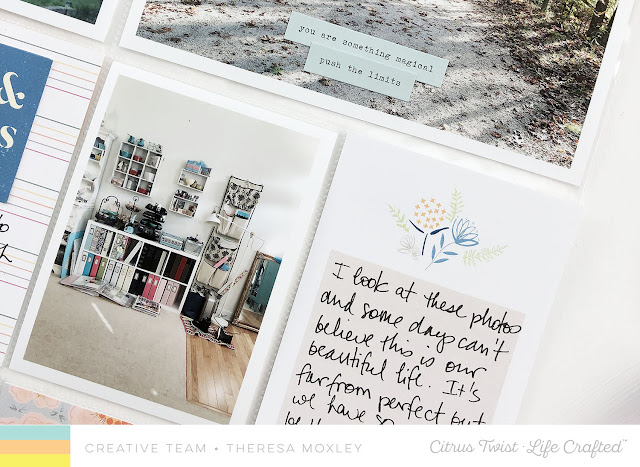 you are something magical
push the limits
&
s
to
I look at these photos
and some days can't
believe this is our
beautiful life. It's
far from perfect but
we have so
CREATIVE TEAM • THERESA MOXLEY
Citrus Twist · Life Crafted™